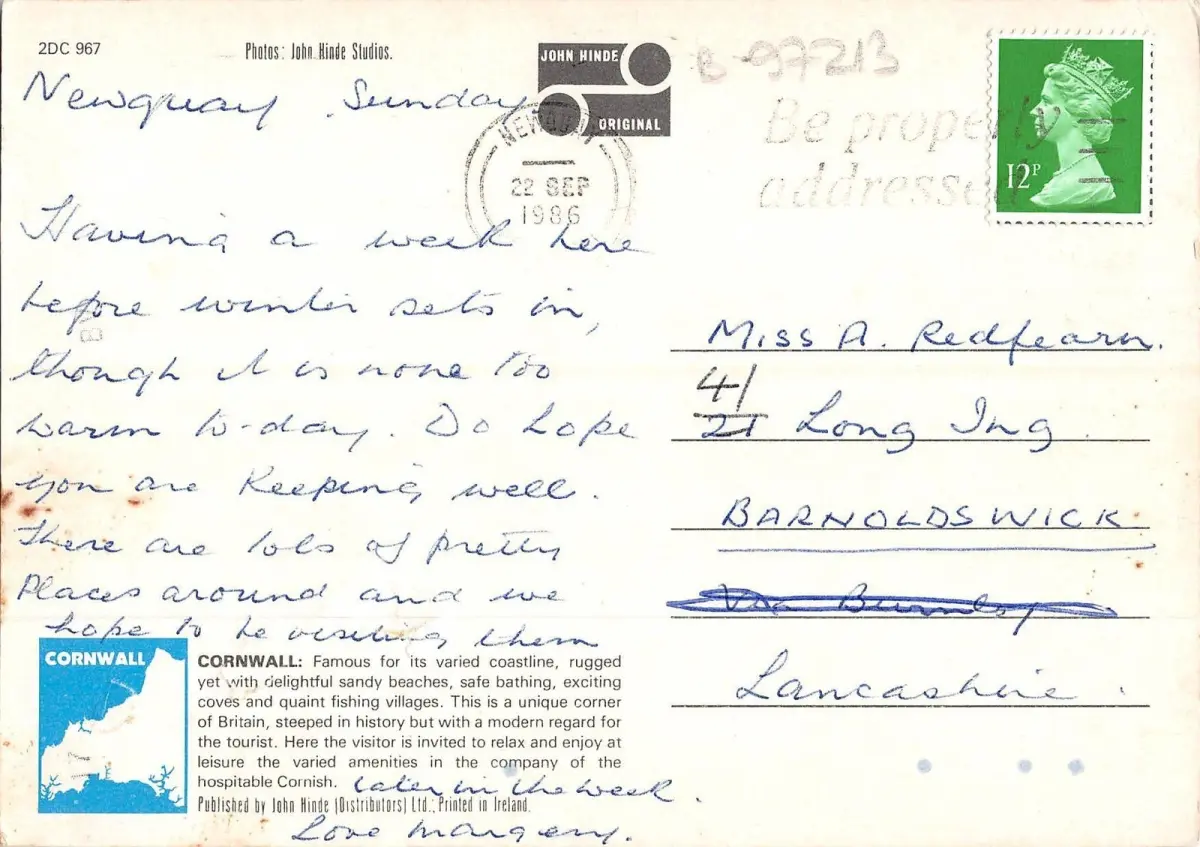 2DC 967
Photos: John Hinde Studios.
JOHN HINDE
ORIGINAL
B-97213
Newquay Sunday
NEWQUAY
22 SEP
1986
Be properly
addressed
12P
Having a week here
before winter sets in,
though it is none too
warm to-day. Do hope
you are Keeping well.
There are lots of pretty
Places around and we
hope to be visiting them
later in the week.
Love Margery.
Miss A. Redfearn.
4/
21 Long Ing.
BARNOLDSWICK
Via Burnley
Lancashire.
CORNWALL
CORNWALL: Famous for its varied coastline, rugged
yet with delightful sandy beaches, safe bathing, exciting
coves and quaint fishing villages. This is a unique corner
of Britain, steeped in history but with a modern regard for
the tourist. Here the visitor is invited to relax and enjoy at
leisure the varied amenities in the company of the
hospitable Cornish.
Published by John Hinde (Distributors) Ltd., Printed in Ireland.